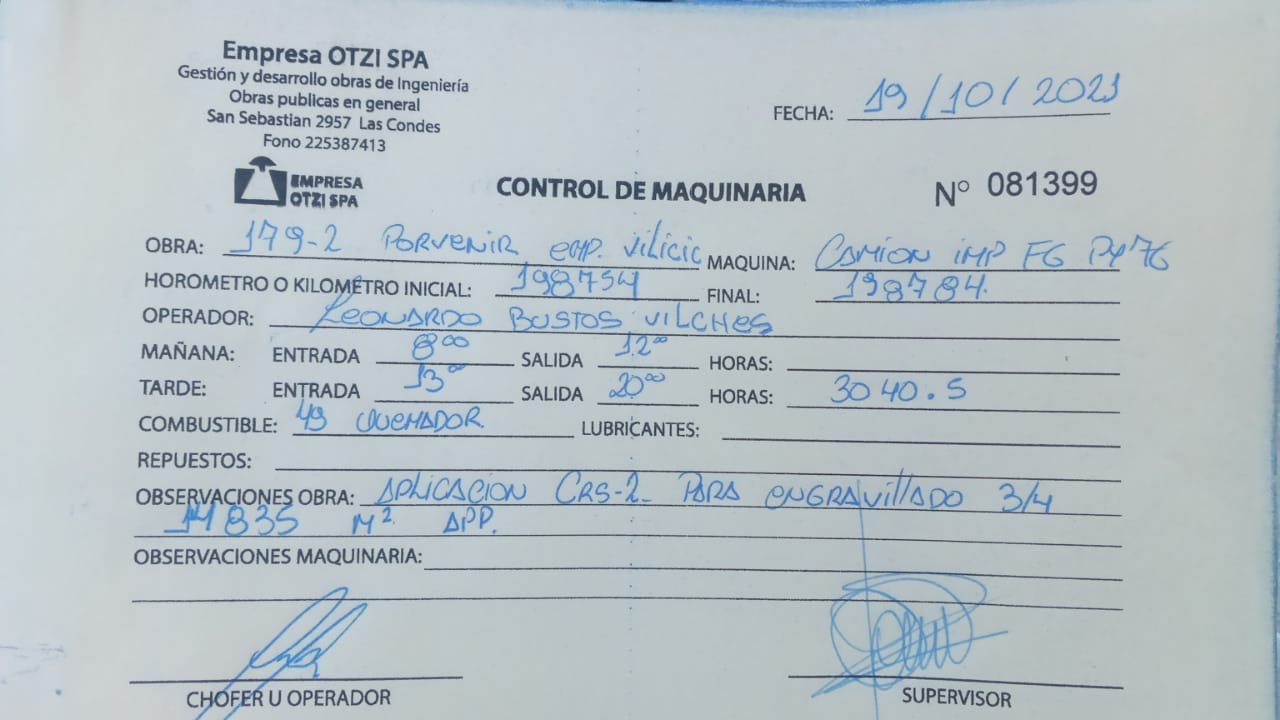 Empresa OTZI SPA
Gestión y desarrollo obras de Ingeniería
Obras publicas en general
San Sebastian 2957 Las Condes
Fono 225387413
FECHA: 19/10/2021
EMPRESA
OTZI SPA
CONTROL DE MAQUINARIA
N° 081399
OBRA: 179-2 PORVENIR EMP. VILICIC MAQUINA: CAMION IMP FG
HOROMETRO O KILOMETRO INICIAL: 198754 FINAL: 198784.
OPERADOR: LEONARDO BUSTOS VILCHES
MAÑANA: ENTRADA 8°° SALIDA 12°° HORAS:
TARDE: ENTRADA 13°° SALIDA 20°° HORAS: 3040.5
COMBUSTIBLE: 49 QUEMADOR. LUBRICANTES:
REPUESTOS:
OBSERVACIONES OBRA: APLICACION CRS-2 PARA ENGRAVILLADO 3/4
M² APP.
OBSERVACIONES MAQUINARIA:
CHOFER U OPERADOR
SUPERVISOR